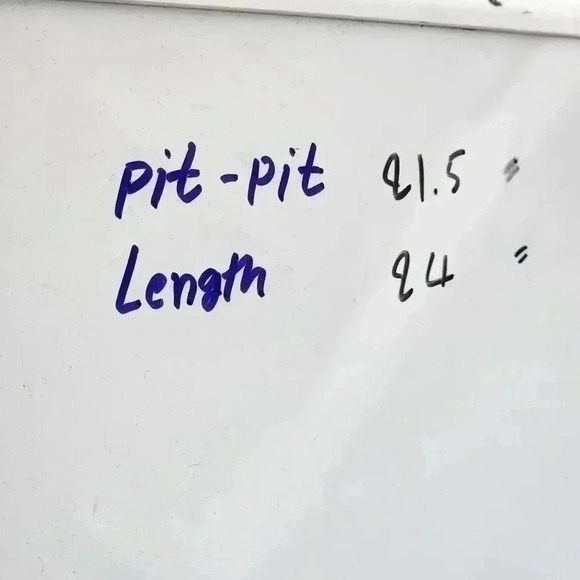 pit-pit 21.5 "
Length 24 "